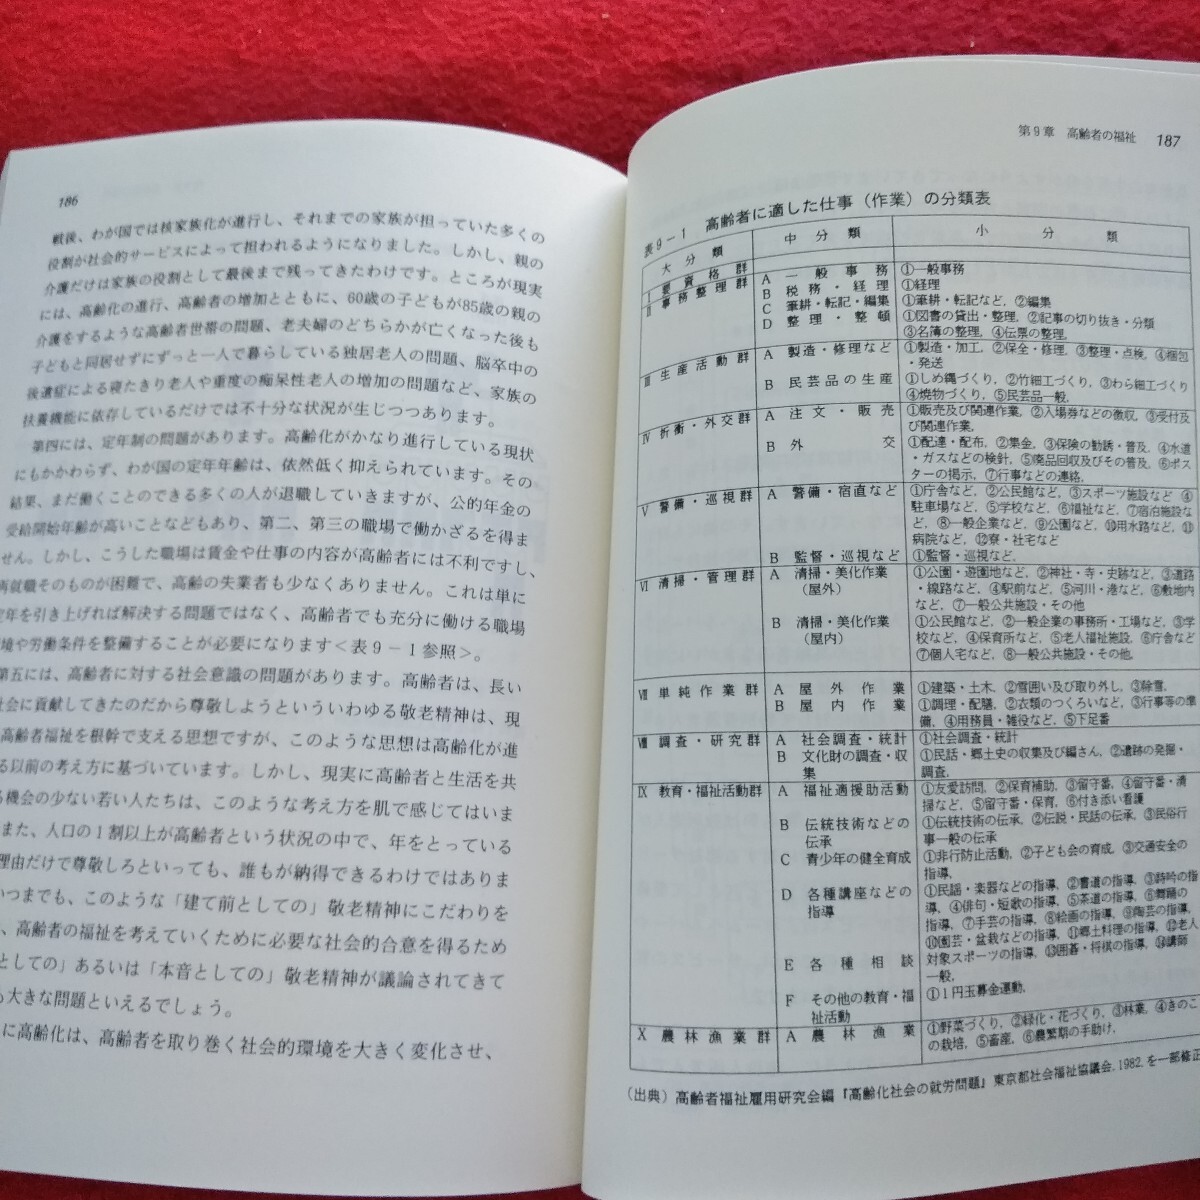 186
戦後、わが国では核家族化が進行し、それまでの家族が担っていた多くの
役割が社会的サービスによって担われるようになりました。しかし、親の
介護だけは家族の役割として最後まで残ってきたわけです。ところが現実
には、高齢化の進行、高齢者の増加とともに、60歳の子どもが85歳の親の
介護をするような高齢者世帯の問題、老夫婦のどちらかが亡くなった後も
子どもと同居せずにずっと一人で暮らしている独居老人の問題、脳卒中の
後遺症による寝たきり老人や重度の痴呆性老人の増加の問題など、家族の
扶養機能に依存しているだけでは不十分な状況が生じつつあります。
第四には、定年制の問題があります。高齢化がかなり進行している現状
にもかかわらず、わが国の定年年齢は、依然低く抑えられています。その
結果、まだ働くことのできる多くの人が退職していきますが、公的年金の
受給開始年齢が高いことなどもあり、第二、第三の職場で働かざるを得ま
せん。しかし、こうした職場は賃金や仕事の内容が高齢者には不利ですし、
再就職そのものが困難で、高齢の失業者も少なくありません。これは単に
定年を引き上げれば解決する問題ではなく、高齢者でも充分に働ける職場
環境や労働条件を整備することが必要になります＜表9－1参照＞。
第五には、高齢者に対する社会意識の問題があります。高齢者は、長い
社会に貢献してきたのだから尊敬しようといういわゆる敬老精神は、現
高齢者福祉を根幹で支える思想ですが、このような思想は高齢化が進
る以前の考え方に基づいています。しかし、現実に高齢者と生活を共
る機会の少ない若い人たちは、このような考え方を肌で感じてはいま
また、人口の1割以上が高齢者という状況の中で、年をとっている
理由だけで尊敬しろといっても、誰もが納得できるわけではありま
いつまでも、このような「建て前としての」敬老精神にこだわりを
、高齢者の福祉を考えていくために必要な社会的合意を得るため
としての」あるいは「本音としての」敬老精神が議論されてきて
も大きな問題といえるでしょう。
に高齢化は、高齢者を取り巻く社会的環境を大きく変化させ、
第9章　高齢者の福祉　187
表9－1　高齢者に適した仕事（作業）の分類表
大分類　中分類　小分類
Ⅰ 要資格群
Ⅱ 事務整理群　A 一般事務　①一般事務
B 税務・経理　①経理
C 筆耕・転記・編集　①筆耕・転記など，②編集
D 整理・整頓　①図書の貸出・整理，②記事の切り抜き・分類
③名簿の整理，④伝票の整理，
Ⅲ 生産活動群　A 製造・修理など　①製造・加工，②保全・修理，③整理・点検，④梱包
・発送
B 民芸品の生産　①しめ縄づくり，②竹細工づくり，③わら細工づくり
④焼物づくり，⑤民芸品一般，
Ⅳ 折衝・外交群　A 注文・販売　①販売及び関連作業，②入場券などの徴収，③受付及
び関連作業，
B 外交　①配達・配布，②集金，③保険の勧誘・普及，④水道
・ガスなどの検針，⑤廃品回収及びその普及，⑥ポス
ターの掲示，⑦行事などの連絡，
Ⅴ 警備・巡視群　A 警備・宿直など　①庁舎など，②公民館など，③スポーツ施設など　④
駐車場など，⑤学校など，⑥福祉など，⑦宿泊施設な
ど，⑧一般企業など，⑨公園など，⑩用水路など，⑪
病院など，⑫寮・社宅など
B 監督・巡視など　①監督・巡視など，
Ⅵ 清掃・管理群　A 清掃・美化作業　①公園・遊園地など，②神社・寺・史跡など，③道路
（屋外）　・線路など，④駅前など，⑤河川・港など，⑥敷地内
など，⑦一般公共施設・その他
B 清掃・美化作業　①公民館など，②一般企業の事務所・工場など，③学
（屋内）　校など，④保育所など，⑤老人福祉施設，⑥庁舎など
⑦個人宅など，⑧一般公共施設・その他，
Ⅶ 単純作業群　A 屋外作業　①建築・土木，②雪囲い及び取り外し，③除雪，
B 屋内作業　①調理・配膳，②衣類のつくろいなど，③行事等の準
備，④用務員・雑役など，⑤下足番
Ⅷ 調査・研究群　A 社会調査・統計　①社会調査・統計
B 文化財の調査・収　①民話・郷土史の収集及び編さん，②遺跡の発掘・
集　調査，
Ⅸ 教育・福祉活動群　A 福祉適援助活動　①友愛訪問，②保育補助，③留守番，④留守番・清
掃など，⑤留守番・保育，⑥付き添い看護
B 伝統技術などの　①伝統技術の伝承，②伝説・民話の伝承，③民俗行
伝承　事一般の伝承
C 青少年の健全育成　①非行防止活動，②子ども会の育成，③交通安全の
指導，
D 各種講座などの　①民謡・楽器などの指導，②書道の指導，③詩吟の指
指導　導，④俳句・短歌の指導，⑤茶道の指導，⑥舞踊の
指導，⑦手芸の指導，⑧絵画の指導，⑨陶芸の指導，
⑩園芸・盆栽などの指導，⑪郷土料理の指導，⑫老人
対象スポーツの指導，⑬囲碁・将棋の指導，⑭講師
E 各種相談　一般，
F その他の教育・福　①1円玉募金運動，
祉活動
Ⅹ 農林漁業群　A 農林漁業　①野菜づくり，②緑化・花づくり，③林業，④きのこ
の栽培，⑤畜産，⑥農繁期の手助け，
（出典）高齢者福祉雇用研究会編『高齢化社会の就労問題』東京都社会福祉協議会，1982．を一部修正